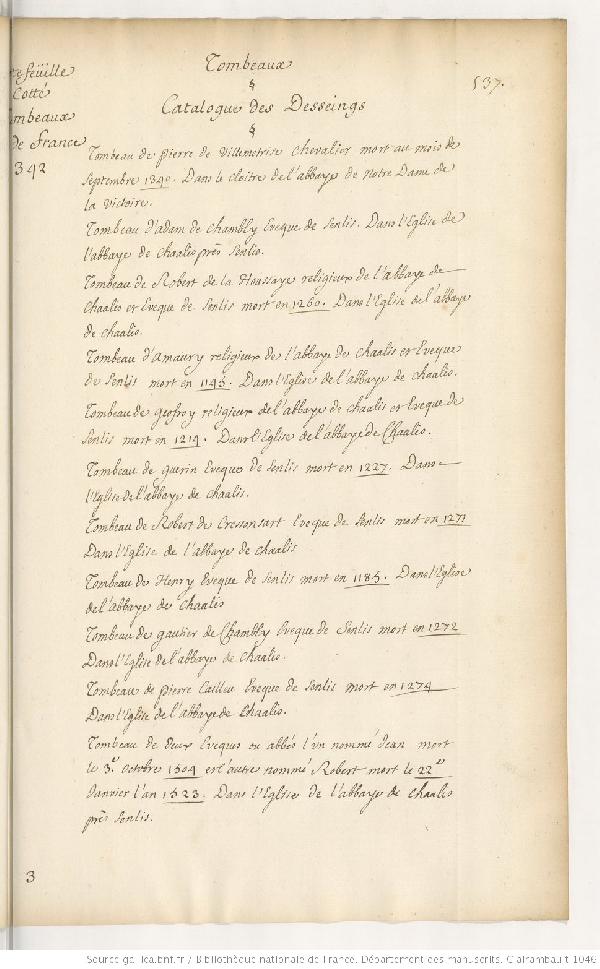 Tombeaux
§
Catalogue des Desseings
§
537.
feüille
Cotté
Tombeaux
de France
342
Tombeau de pierre de Villemetrise chevalier mort au mois de
Septembre 1340. Dans le cloitre de l'abbaye de Notre Dame de
la victoire.
Tombeau d'adam de chambly Eveque de Senlis. Dans l'Eglise de
l'abbaye de chaalis près Senlis.
Tombeau de Robert de la Houssaye religieux de l'abbaye de
Chaalis et Eveque de Senlis mort en 1260. Dans l'Eglise de l'abbaye
de chaalis.
Tombeau d'amaury religieux de l'abbaye de chaalis et Eveque
de Senlis mort en 1145. Dans l'Eglise de l'abbaye de chaalis.
Tombeau de geofroy religieux de l'abbaye de chaalis et Eveque de
Senlis mort en 1214. Dans l'Eglise de l'abbaye de Chaalis.
Tombeau de guerin Eveque de Senlis mort en 1227. Dans
l'Eglise de l'abbaye de chaalis.
Tombeau de Robert de Cressonsart Eveque de Senlis mort en 1271
Dans l'Eglise de l'abbaye de chaalis
Tombeau de Henry Eveque de Senlis mort en 1185. Dans l'Eglise
de l'abbaye de Chaalis
Tombeau de gautier de Chambly Eveque de Senlis mort en 1272
Dans l'Eglise de l'abbaye de Chaalis.
Tombeau de pierre Caillou Eveque de Senlis mort en 1274
Dans l'Eglise de l'abbaye de Chaalis.
Tombeau de deux Eveques ou abbés l'un nommé Jean mort
le 3.e octobre 1504 et l'autre nommé Robert mort le 22.e
Janvier l'an 1523. Dans l'Eglise de l'abbaye de chaalis
près Senlis.
3
Source gallica.bnf.fr / Bibliothèque nationale de France. Département des manuscrits. Clairambault 1046